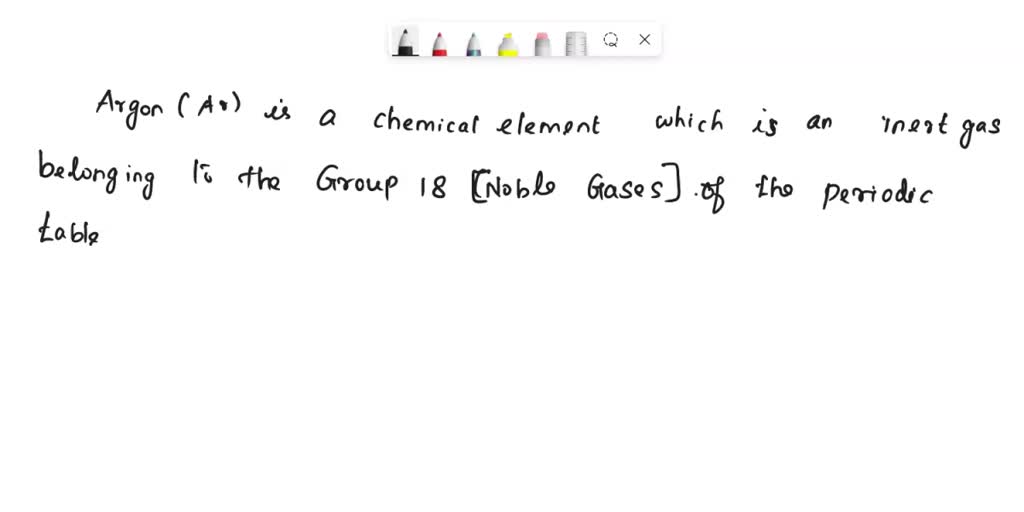 Argon (Ar) is a chemical element which is an inert gas
belonging to the Group 18 [Noble Gases] of the periodic
table